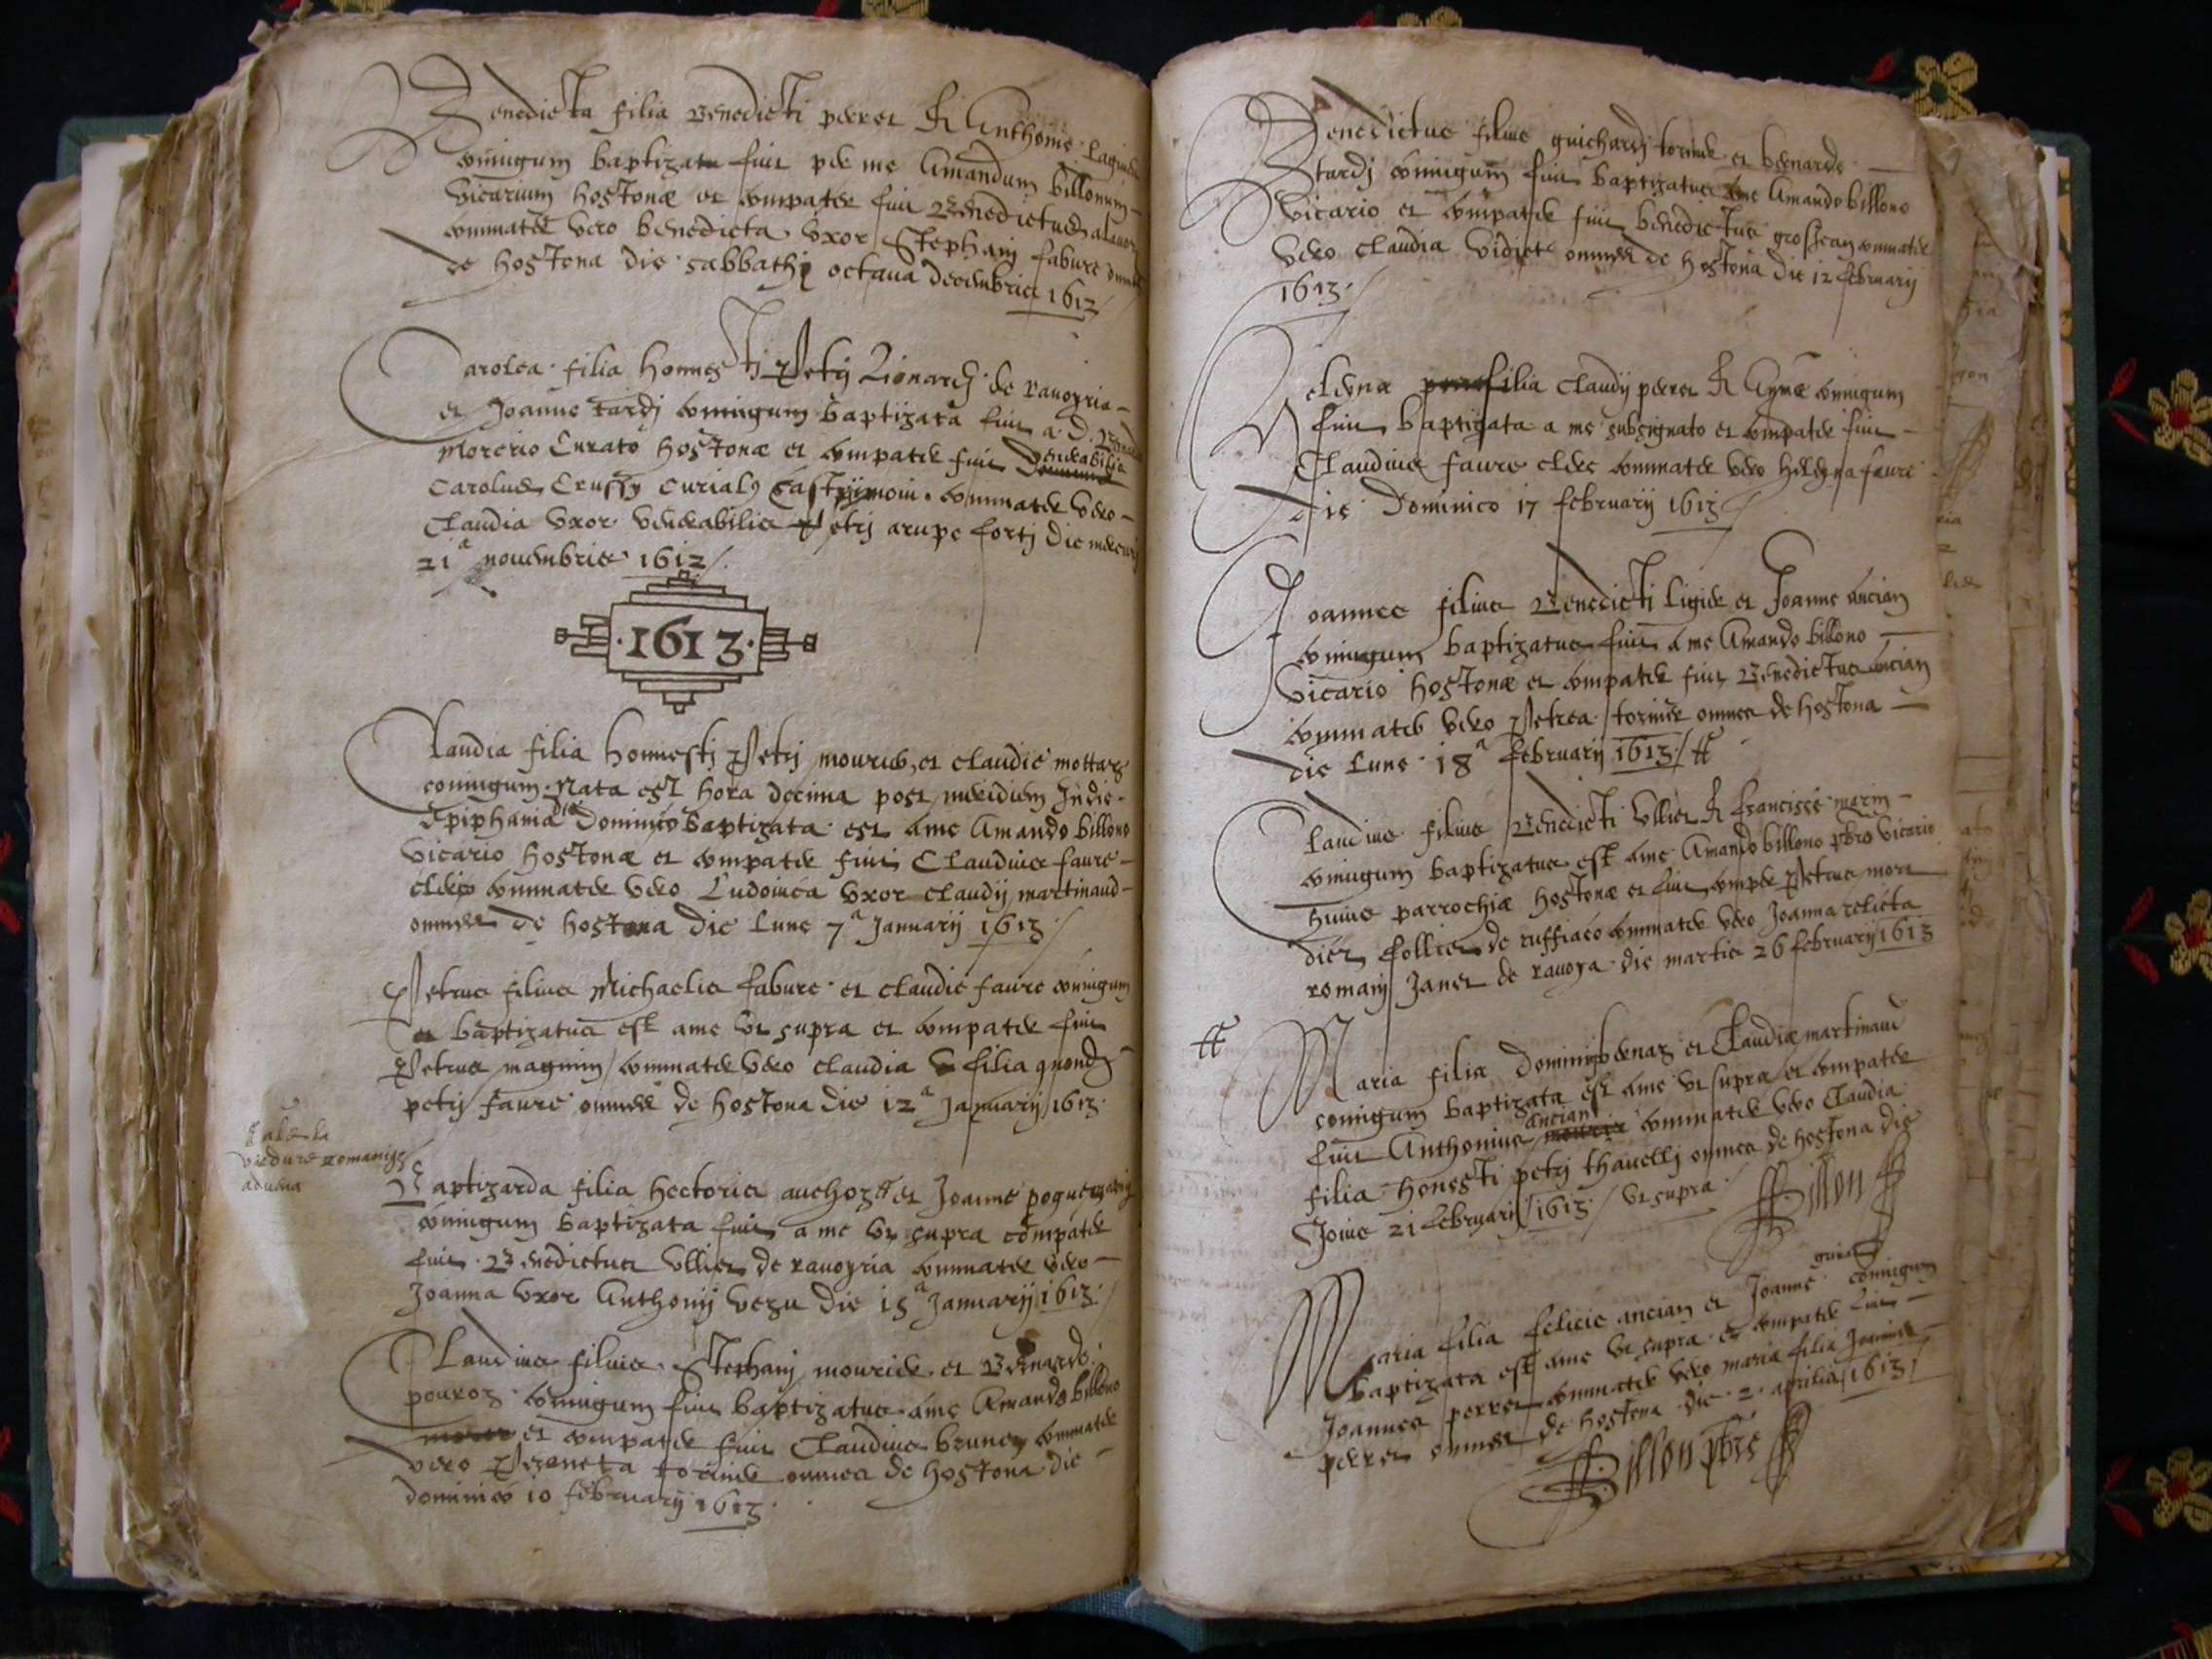 Benedicta filia Benedicti perret & Anthonie
coniugum baptizata fuit per me Amandum billonum
vicarium hostonæ et compater fuit Benedictus
commater vero benedicta uxor Stephanj fabure
de hostona die sabbathj octaua decembris 1612
Carolea filia honnestj Petrj Lionardj de rauoyria
et Joanne tardj coniugum baptizata fuit a D.
Morerio Curato hostonæ et compater fuit venerabilis
Carolus Crussy curialis commater vero
Claudia uxor venerabilis Petrj arupe fortj die mercurij
21a nouembris 1612
·1613·
Claudia filia honnestj Petrj mourier, et claudie mottaz
coniugum. Nata est hora decima post meridium In die
Epiphania Dominj baptizata est a me Amando billono
vicario hostonæ et compater fuit Claudius faure
clerc commater vero Ludouica uxor claudij martinaud
omnes de hostona die lune 7a Januarij 1613
Petrus filius Michaelis fabure et claudie faure coniugum
baptizatus est a me ut supra et compater fuit
Petrus magnin commater vero claudia filia quondam
petrj faure omnes de hostona die 12a Januarij 1613
Baptizarda filia hectoris et Joanne
coniugum baptizata fuit a me ut supra compater
fuit Benedictus Ullier de rauoyria commater vero
Joanna uxor Anthonij vezu die 15a Januarij 1613
Claudius filius Stephanj mourier et Bernarde
pouroz coniugum fuit baptizatus a me Amando billono
et compater fuit Claudius brunet commater
vero Perneta tornier omnes de hostona die
dominico 10 februarij 1613
Benedictus filius guichardj tornier et bernarde
tardj coniugum fuit baptizatus a me Amando billono
vicario et compater fuit benedictus grosjean commater
vero claudia vidict omnes de hostona die 12 februarij
1613
elena filia Claudij perret & Ayme coniugum
fuit baptizata a me subsignato et compater fuit
Claudius faure clerc commater vero helena faure
die Dominico 17 februarij 1613
Joannes filius Benedictj ligier et Joanne ancian
coniugum baptizatus fuit a me Amando billono
vicario hostonæ et compater fuit Benedictus ancian
commater vero Petrea tornier omnes de hostona
die lune 18a februarij 1613
Claudius filius Benedictj Ullier & francisce marin
coniugum baptizatus est a me Amando billono pbro vicario
huius parrochiæ hostonæ et fuit comper Petrus mon
dier follier de ruffiaco commater vero Joanna relicta
romanj Janet de rauoya die martis 26 februarij 1613
Maria filia Dominicj et Claudiæ martinaud
coniugum baptizata est a me ut supra et compater
fuit Anthonius ancian commater vero Claudia
filia honestj petrj thauellj omnes de hostona die
Jouis 21 februarij 1613 ut supra Billon
Maria filia felicis ancian et Joanne coniugum
baptizata est a me ut supra et compater fuit
Joannes perret commater vero maria filia Joannis
perret omnes de hostona die 2 aprilis 1613
Billon pbre